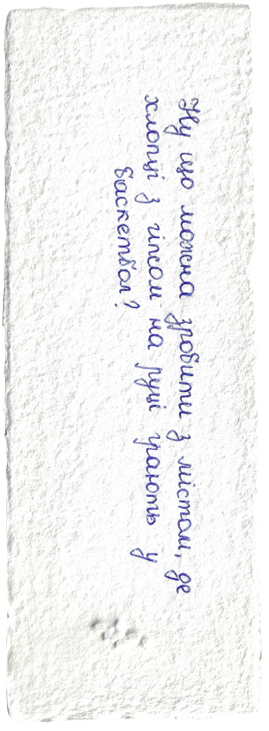 Ну що можна зробити з містом, де
хлопці з гіпсом на руці грають у
баскетбол?